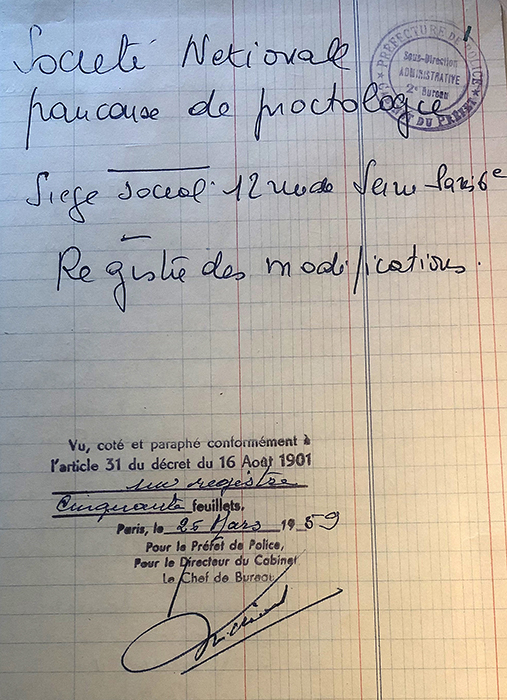 Societé Nationale
française de proctologie
PREFECTURE DE POLICE
Sous-Direction
ADMINISTRATIVE
2e Bureau
CABINET DU PREFET
Siège social: 12 rue de Seine Paris 6e
Registre des modifications.
Vu, coté et paraphé conformément à
l'article 31 du décret du 16 Août 1901
un registre
Cinquante feuillets.
Paris, le 25 Mars 1959
Pour le Préfet de Police,
Pour le Directeur du Cabinet
Le Chef de Bureau